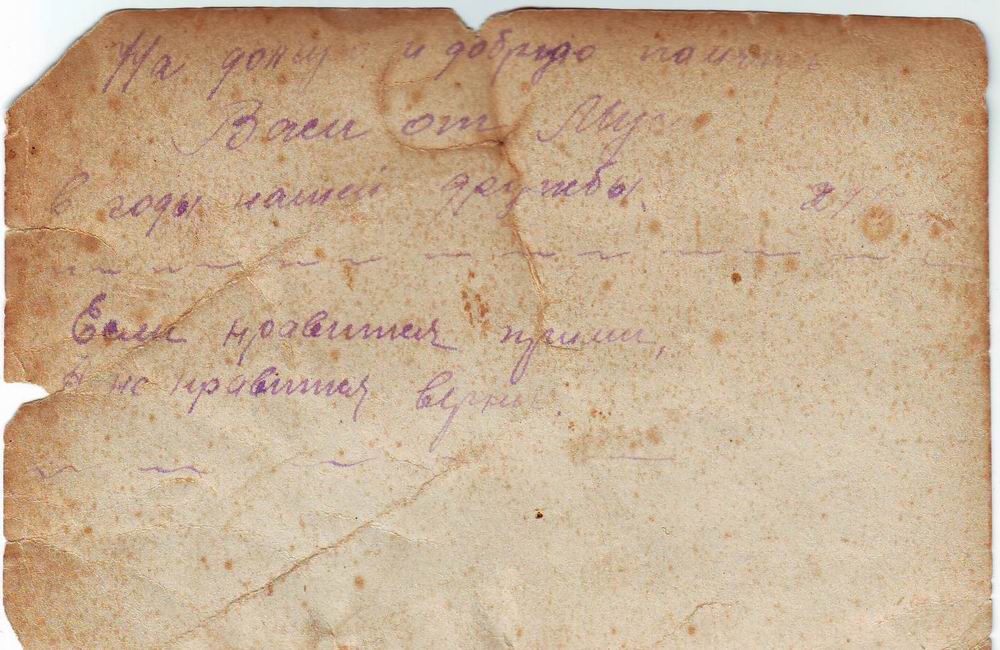 На долгую и добрую память
Васи от Муз
в годы нашей дружбы.
Если нравится прими,
А не нравится верни.